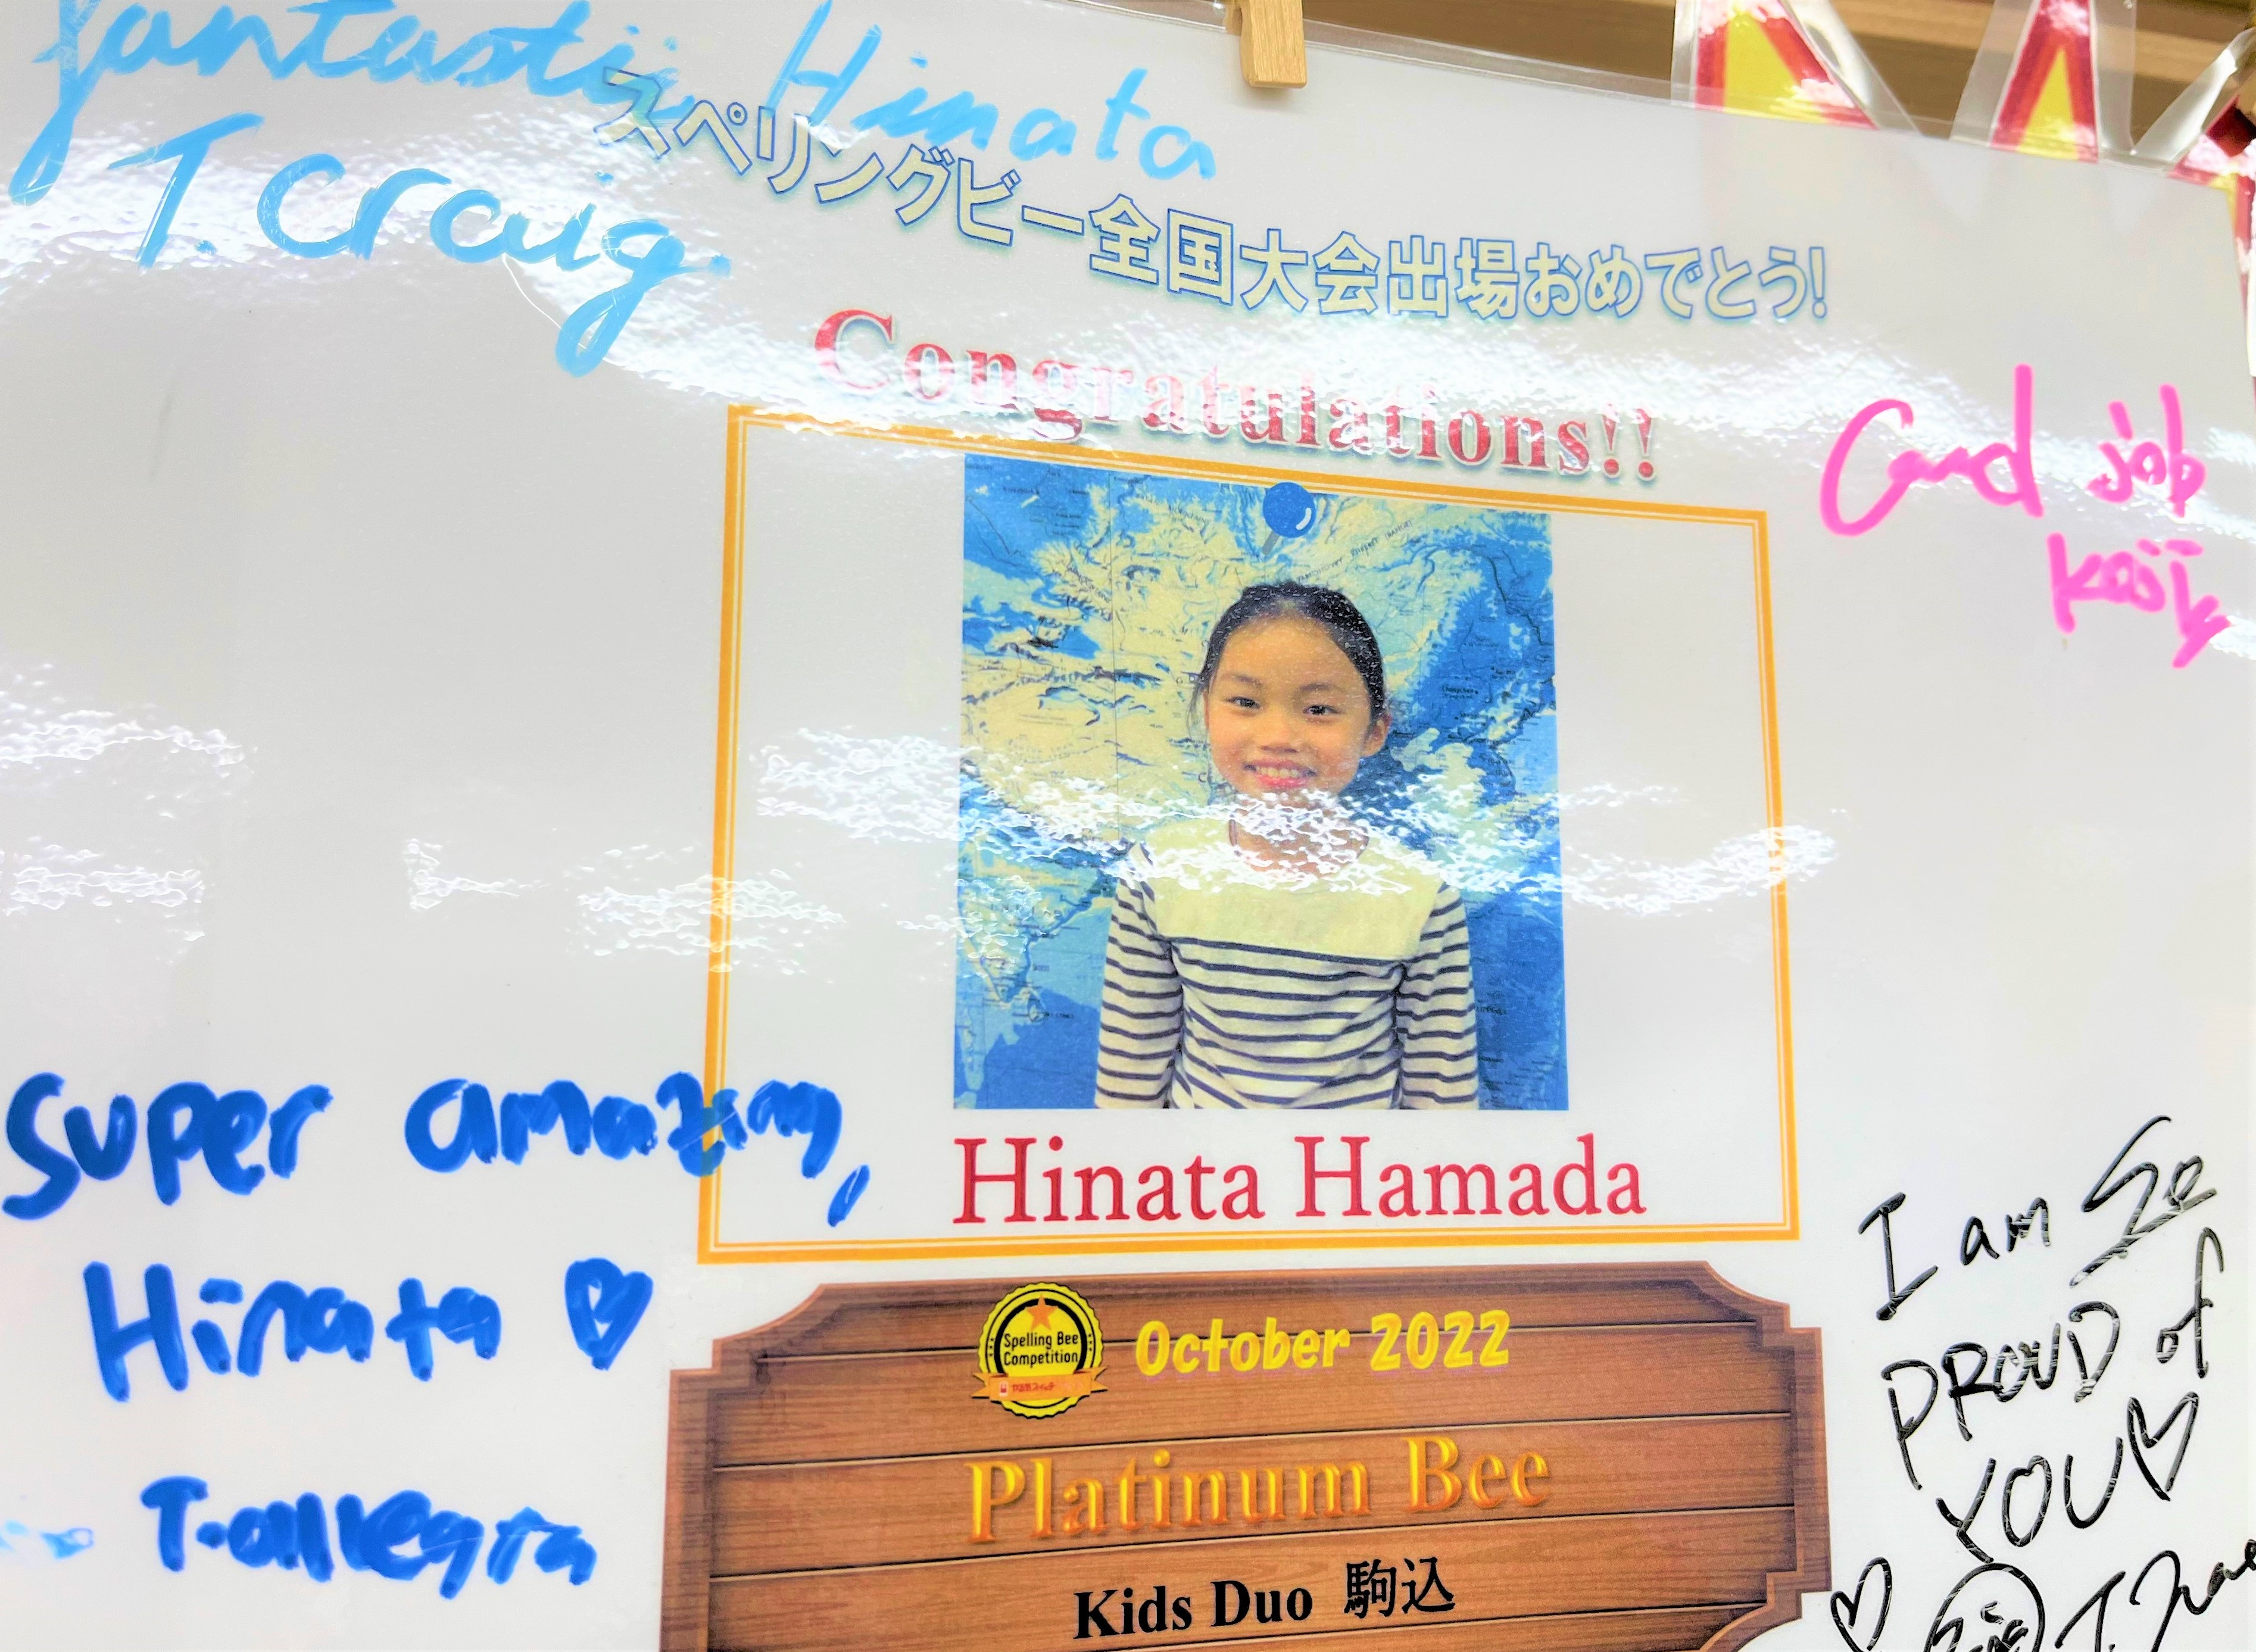 fantastic Hinata
T. Craig
スペリングビー全国大会出場おめでとう!
Congratulations!!
Good job
Hinata Hamada
super amazing,
Hinata
T. allegra
I am so
PROUD of
YOU
Spelling Bee
Competition
October 2022
Platinum Bee
Kids Duo 駒込